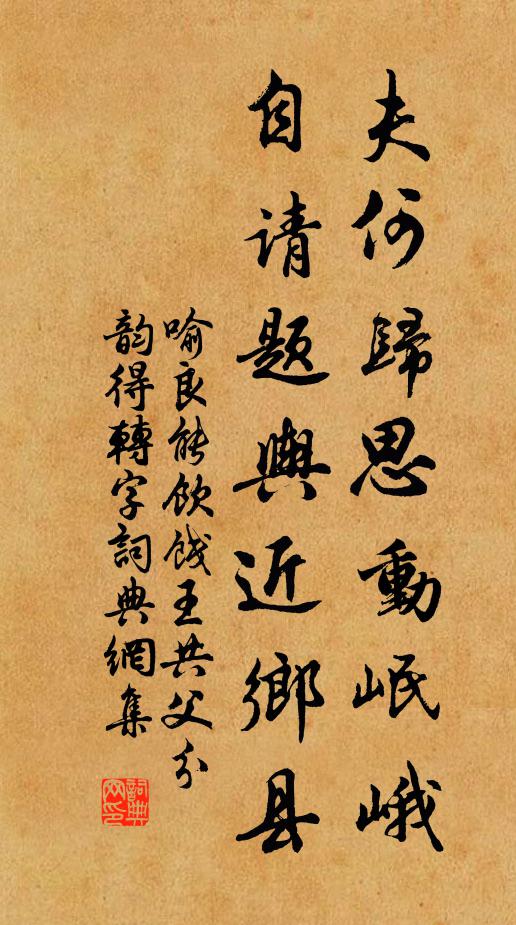 夫何歸思動岷峨
自请題輿近鄉县
喻良能飲餞王共父分
韵得轉字詞典網集
詞典
网印